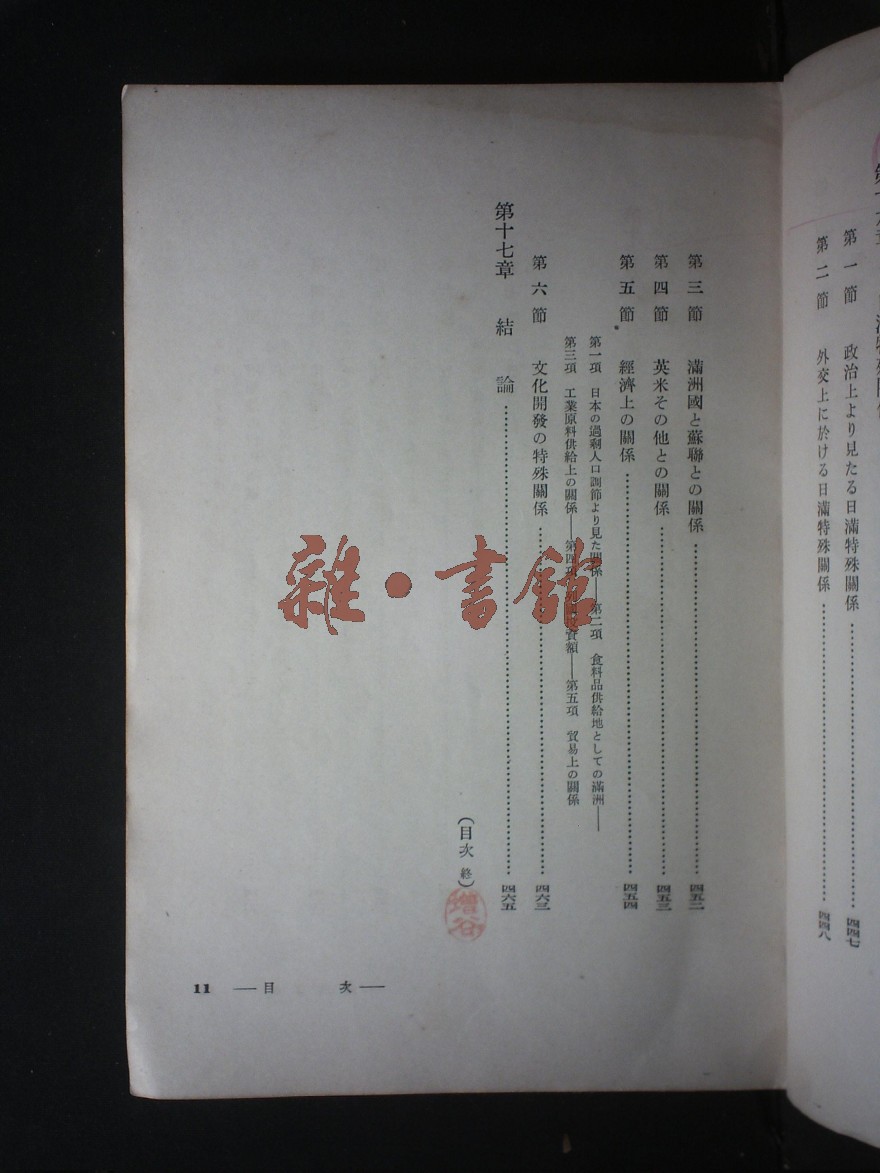 第一節 政治上より見たる日滿特殊關係……四四七
第二節 外交上に於ける日滿特殊關係……四四八
第三節 滿洲國と蘇聯との關係……四五二
第四節 英米その他との關係……四五三
第五節 經濟上の關係……四五四
第一項 日本の過剩人口調節より見た關係――第二項 食料品供給地としての滿洲――
第三項 工業原料供給上の關係――第四項 資額――第五項 貿易上の關係
第六節 文化開發の特殊關係……四六三
第十七章 結論……四六五
(目次終)
增谷
11 ―目次―
雜·書館